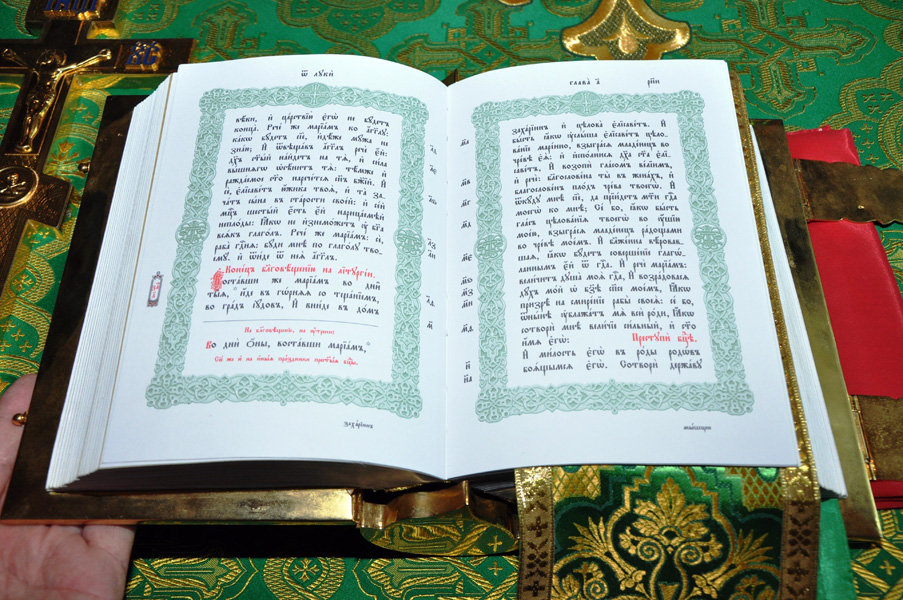 Ѿ лꙋкѝ
вѣ́ки, и҆ ца́рствїю є҆гѡ̀ не бꙋ́детъ
конца̀. Рече́ же марїа́мъ ко а҆́гг҃лꙋ:
ка́кѡ бꙋ́детъ сїѐ, и҆дѣ́же мꙋ́жа не
зна́ю; И҆ ѿвѣща́въ а҆́гг҃лъ речѐ є҆́й:
дх҃ъ ст҃ы́й на́йдетъ на тѧ̀, и҆ си́ла
вы́шнѧгѡ ѡ҆сѣни́тъ тѧ̀: тѣ́мже и҆
ражда́емое ст҃о нарече́тсѧ сн҃ъ бж҃їй. И҆
сѐ, є҆лїсаве́тъ ю҆́жика твоѧ̀, и҆ та̀ за-
ча́тъ сы́на въ ста́рости свое́й: и҆ се́й
мц҃ъ шесты́й є҆́сть є҆́й нарица́емѣй
непло́ды: Ꙗ҆́кѡ не и҆знемо́жетъ ᲂу҆ бг҃а
всѧ́къ глаго́лъ. Рече́ же марїа́мъ: сѐ,
раба̀ гдⷭ҇нѧ: бꙋ́ди мнѣ̀ по глаго́лꙋ тво-
емꙋ̀. и҆ ѿи́де ѿ неѧ̀ а҆́гг҃лъ.
Коне́цъ бл҃говѣ́щенїю на лїтꙋргі́и.
Воста́вши же марїа́мъ во дни̑
ты̑ѧ, и҆́де въ го́рнѧѧ со тща́нїемъ,
во гра́дъ і҆ꙋ́довъ, И҆ вни́де въ до́мъ
На бл҃говѣ́щенїе, на ᲂу҆́трени:
Во дни̑ ѡ҆́ны, воста́вши марїа́мъ,
Сїѐ же и҆ на и҆ны̑ѧ пра́здники прест҃ы́ѧ бцⷣы.
заха́рїинъ
глава̀ а҃
рн҃и
заха́рїинъ и҆ цѣлова̀ є҆лїсаве́тъ. И҆
бы́сть ꙗ҆́кѡ ᲂу҆слы́ша є҆лїсаве́тъ цѣло-
ва́нїе марі́ино, взыгра́сѧ младе́нецъ во
чре́вѣ є҆ѧ̀: и҆ и҆спо́лнисѧ дх҃а ст҃а є҆лї-
саве́тъ, И҆ возопѝ гла́сомъ ве́лїимъ,
и҆ речѐ: благослове́на ты̀ въ жена́хъ, и҆
благослове́нъ пло́дъ чре́ва твоегѡ̀. И҆
ѿкꙋ́дꙋ мнѣ̀ сїѐ, да прїи́детъ мт҃и гдⷭ҇а
моегѡ̀ ко мнѣ̀; Се́ бо, ꙗ҆́кѡ бы́сть
гла́съ цѣлова́нїѧ твоегѡ̀ во ᲂу҆́шїю
мое́ю, взыгра́сѧ младе́нецъ ра́дощами
во чре́вѣ мое́мъ. И҆ бл҃же́нна вѣ́ровав-
шаѧ, ꙗ҆́кѡ бꙋ́детъ соверше́нїе глаго́-
ланнымъ є҆́й ѿ гдⷭ҇а. И҆ речѐ марїа́мъ:
вели́читъ дꙋша̀ моѧ̀ гдⷭ҇а, И҆ возра́довасѧ
дꙋ́хъ мо́й ѡ҆ бз҃ѣ сп҃сѣ мое́мъ. Ꙗ҆́кѡ
призрѣ̀ на смире́нїе рабы̀ своеѧ̀: се́ бо,
ѿнн҃ѣ ᲂу҆блажа́тъ мѧ̀ всѝ ро́ди, Ꙗ҆́кѡ
сотворѝ мнѣ̀ вели́чїе си́льный, и҆ ст҃о
и҆́мѧ є҆гѡ̀:
Престꙋпѝ бцⷣѣ.
И҆ ми́лость є҆гѡ̀ въ ро́ды родѡ́въ
боѧ́щымсѧ є҆гѡ̀. Сотворѝ держа́вꙋ